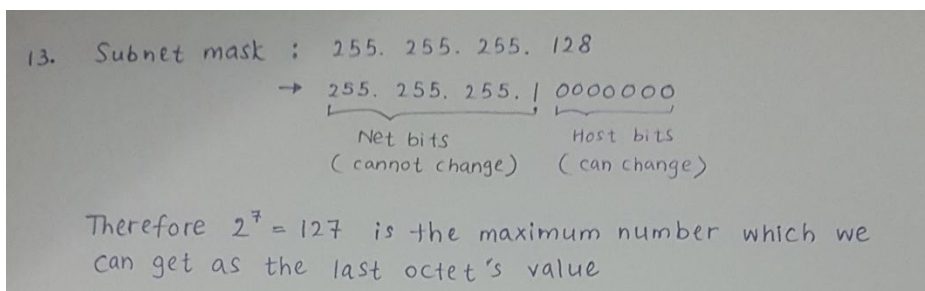 13. Subnet mask : 255. 255. 255. 128
→ 255. 255. 255. 1 0000000
Net bits Host bits
( cannot change) ( can change)
Therefore 2⁷ = 127 is the maximum number which we
can get as the last octet's value